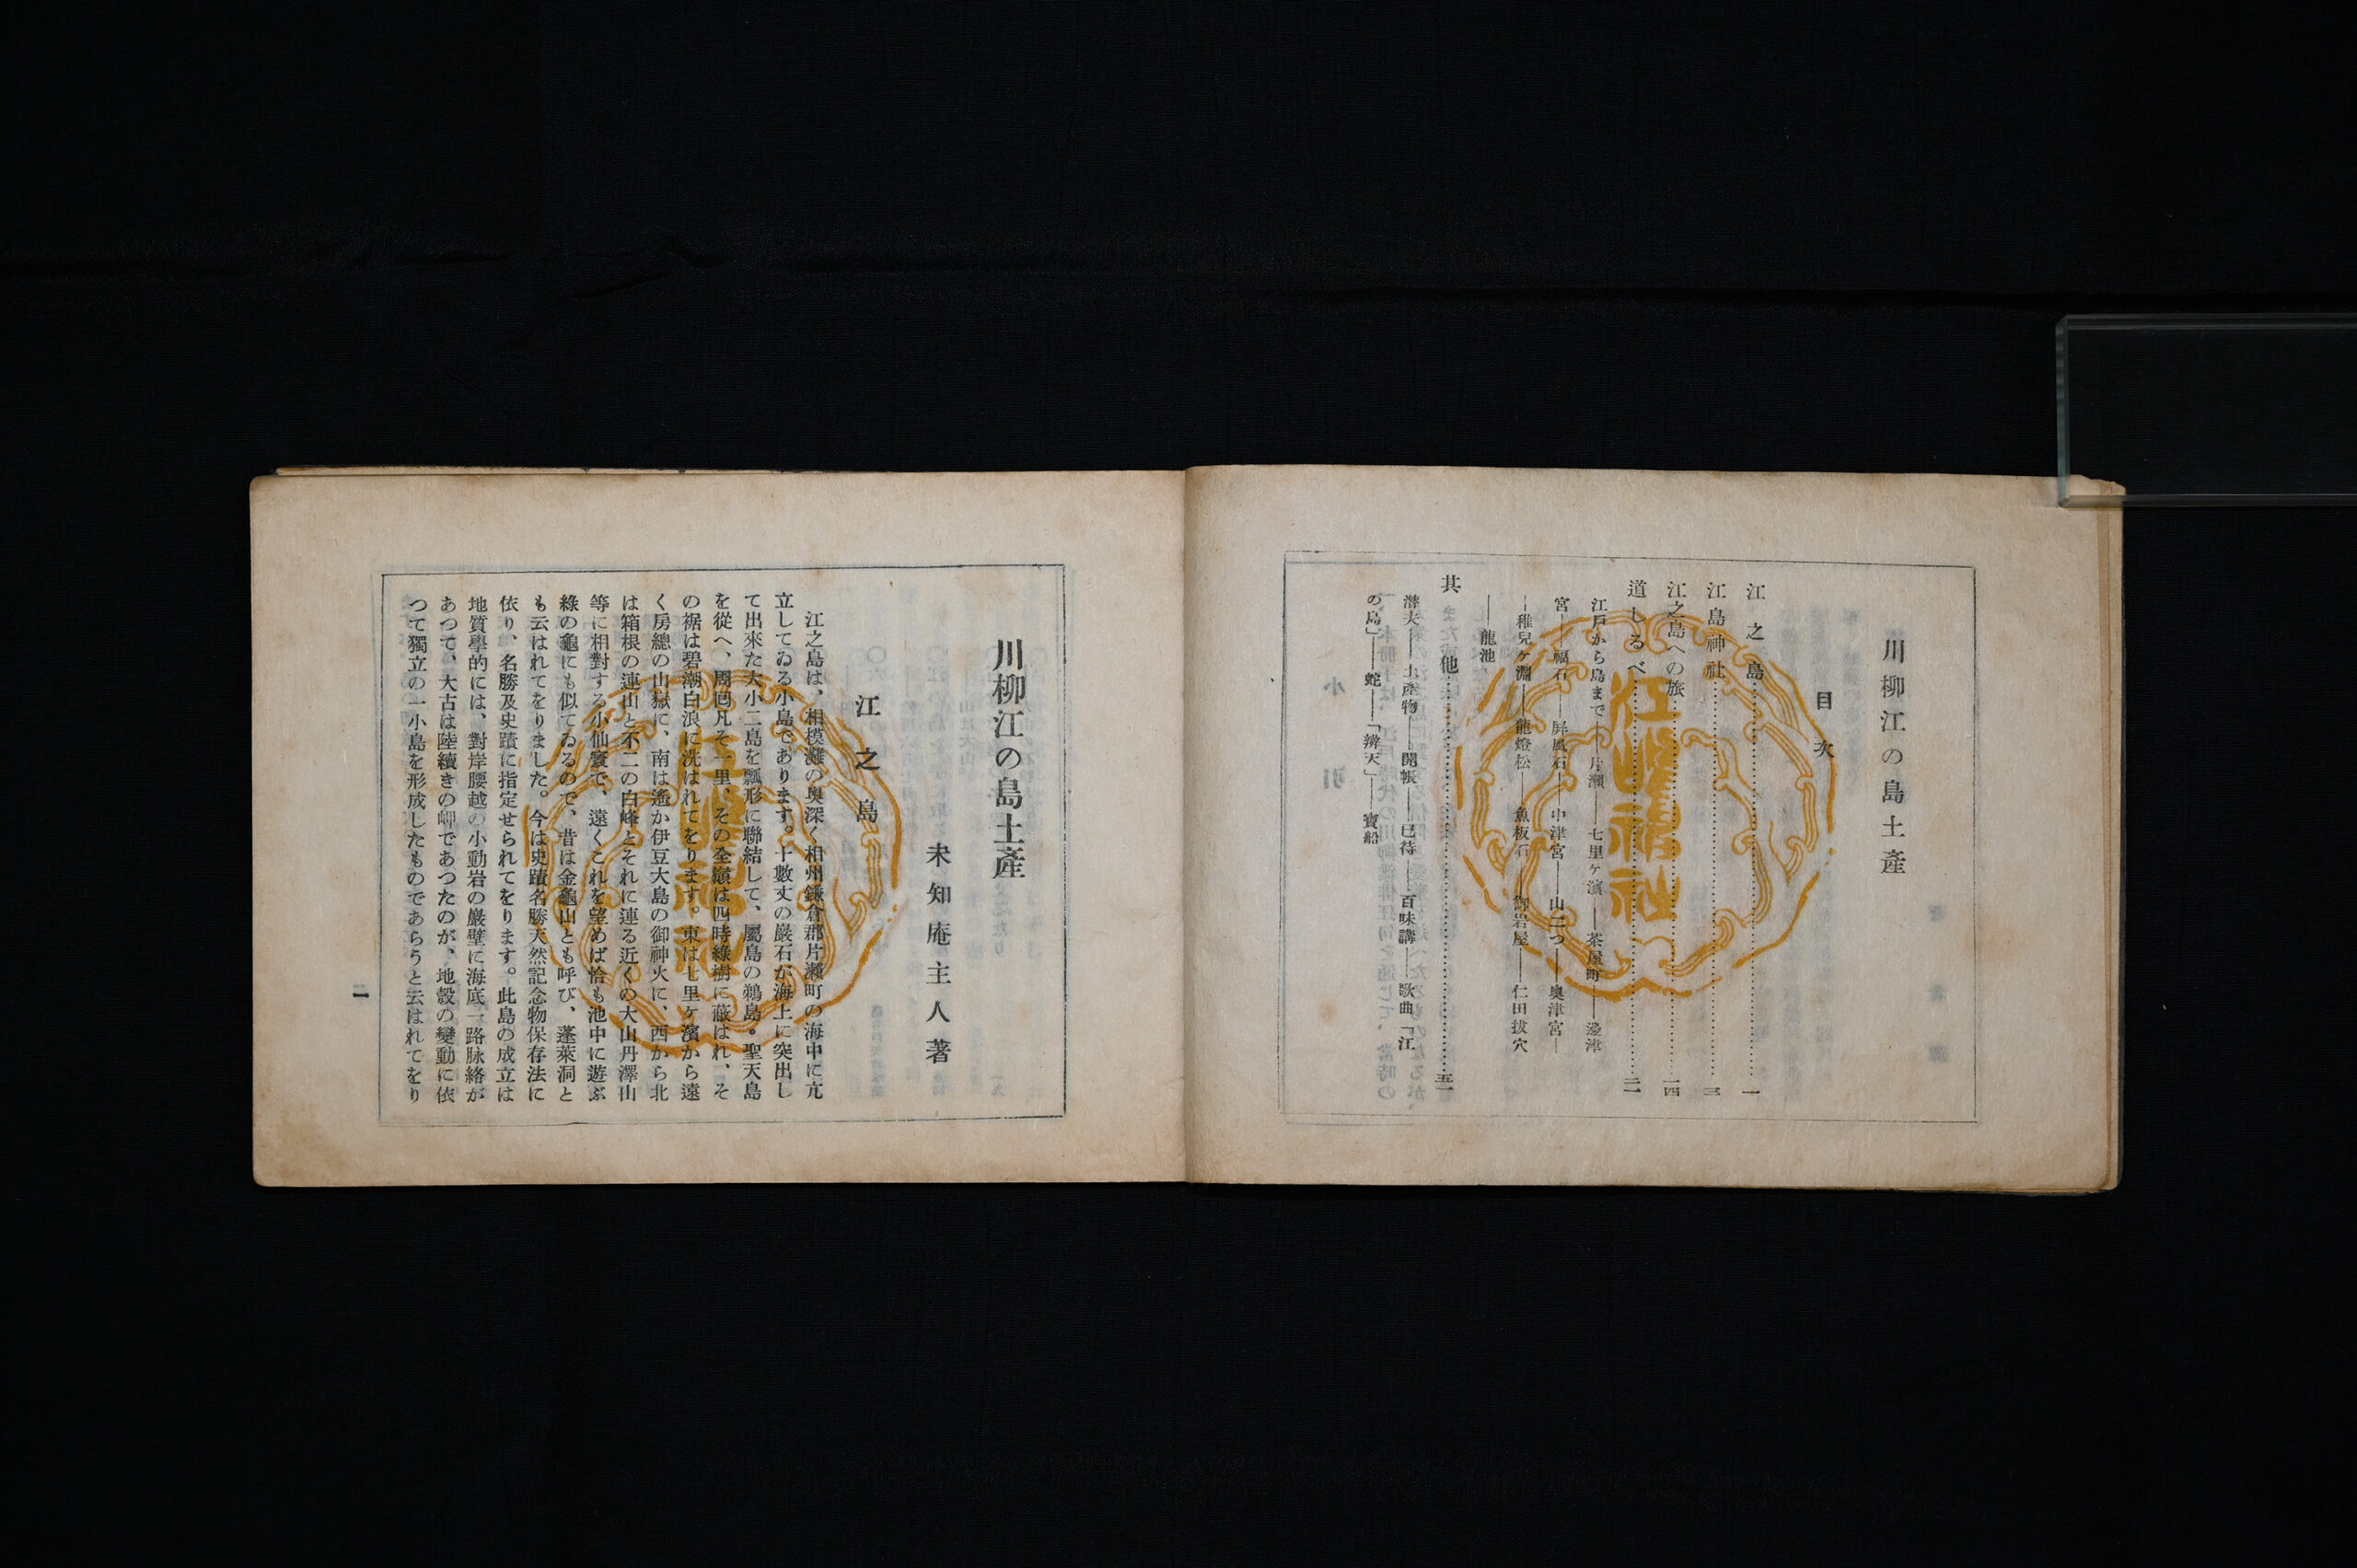 川柳江の島土產
目次
江之島………一
江島神社………三
江之島への旅………一四
道しるべ………二一
江戸から島まで――片瀨――七里ケ濱――茶屋町――邊津
宮――福石――屏風石――中津宮――山二つ――奧津宮―
―稚兒ケ淵――龍燈松――魚板石――御岩屋――仁田拔穴
――龍池
其他………五一
潜夫――土產物――開帳――巳待――百味講――歌曲「江
の島」――蛇――「辨天」――寶船
江島神社
川柳江の島土產
未知庵主人著
江之島
江之島は、相模灘の奧深く相州鎌倉郡片瀨町の海中に亢
立してゐる小島であります。十數丈の巖石が海上に突出し
て出來た大小二島を瓢形に聯結して、屬島の鵜島。聖天島
を從へ、周囘凡そ一里、その全嶺は四時綠樹に蔽はれ、そ
の裾は碧潮白浪に洗はれてをります。東は七里ケ濱から遠
く房總の山嶽に、南は遙か伊豆大島の御神火に、西から北
は箱根の連山と不二の白峰とそれに連る近くの大山丹澤山
等に相對する小仙寰で、遠くこれを望めば恰も池中に遊ぶ
綠の龜にも似てゐるので、昔は金龜山とも呼び、蓬萊洞と
も云はれてをりました。今は史蹟名勝天然記念物保存法に
依り、名勝及史蹟に指定せられてをります。此島の成立は
地質學的には、對岸腰越の小動岩の巖壁に海底一路脉絡が
あつて、大古は陸續きの岬であつたのが、地殼の變動に依
つて獨立の一小島を形成したものであらうと云はれてをり
一